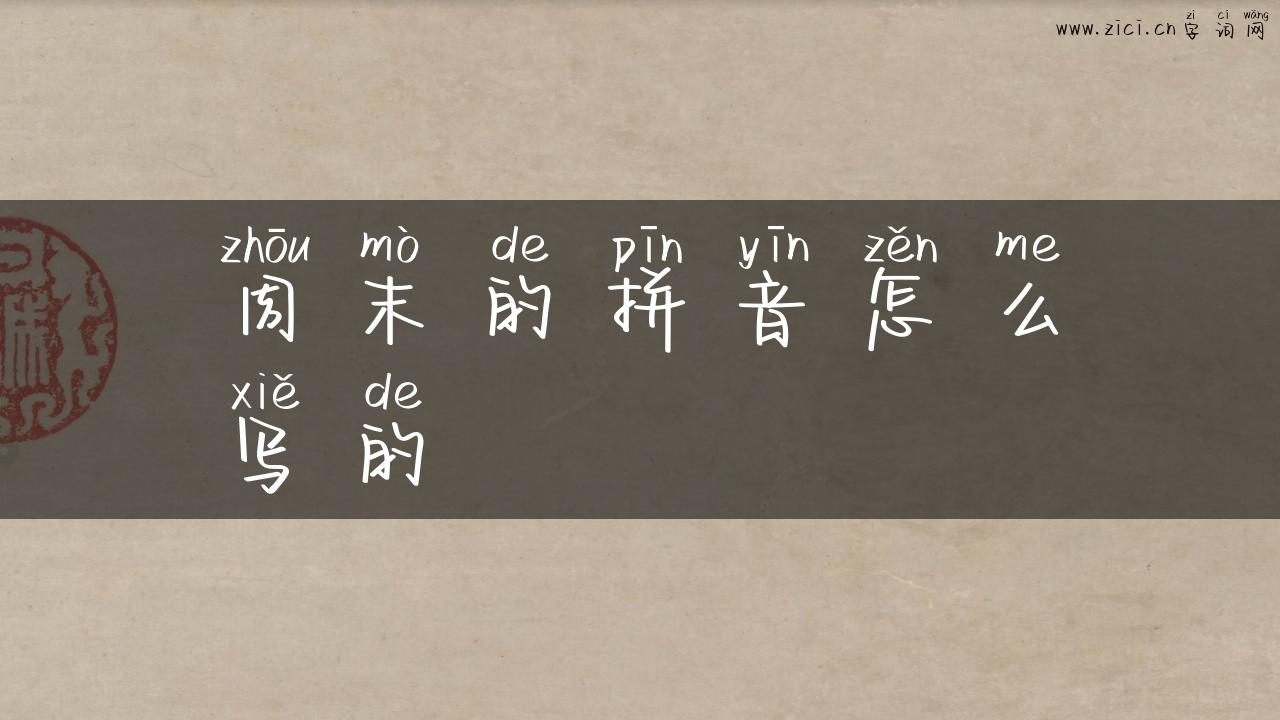 zì cí wǎng
www.zici.cn 字 词 网
zhōu mò de pīn yīn zěn me
周 末 的 拼 音 怎 么
xiě de
写 的